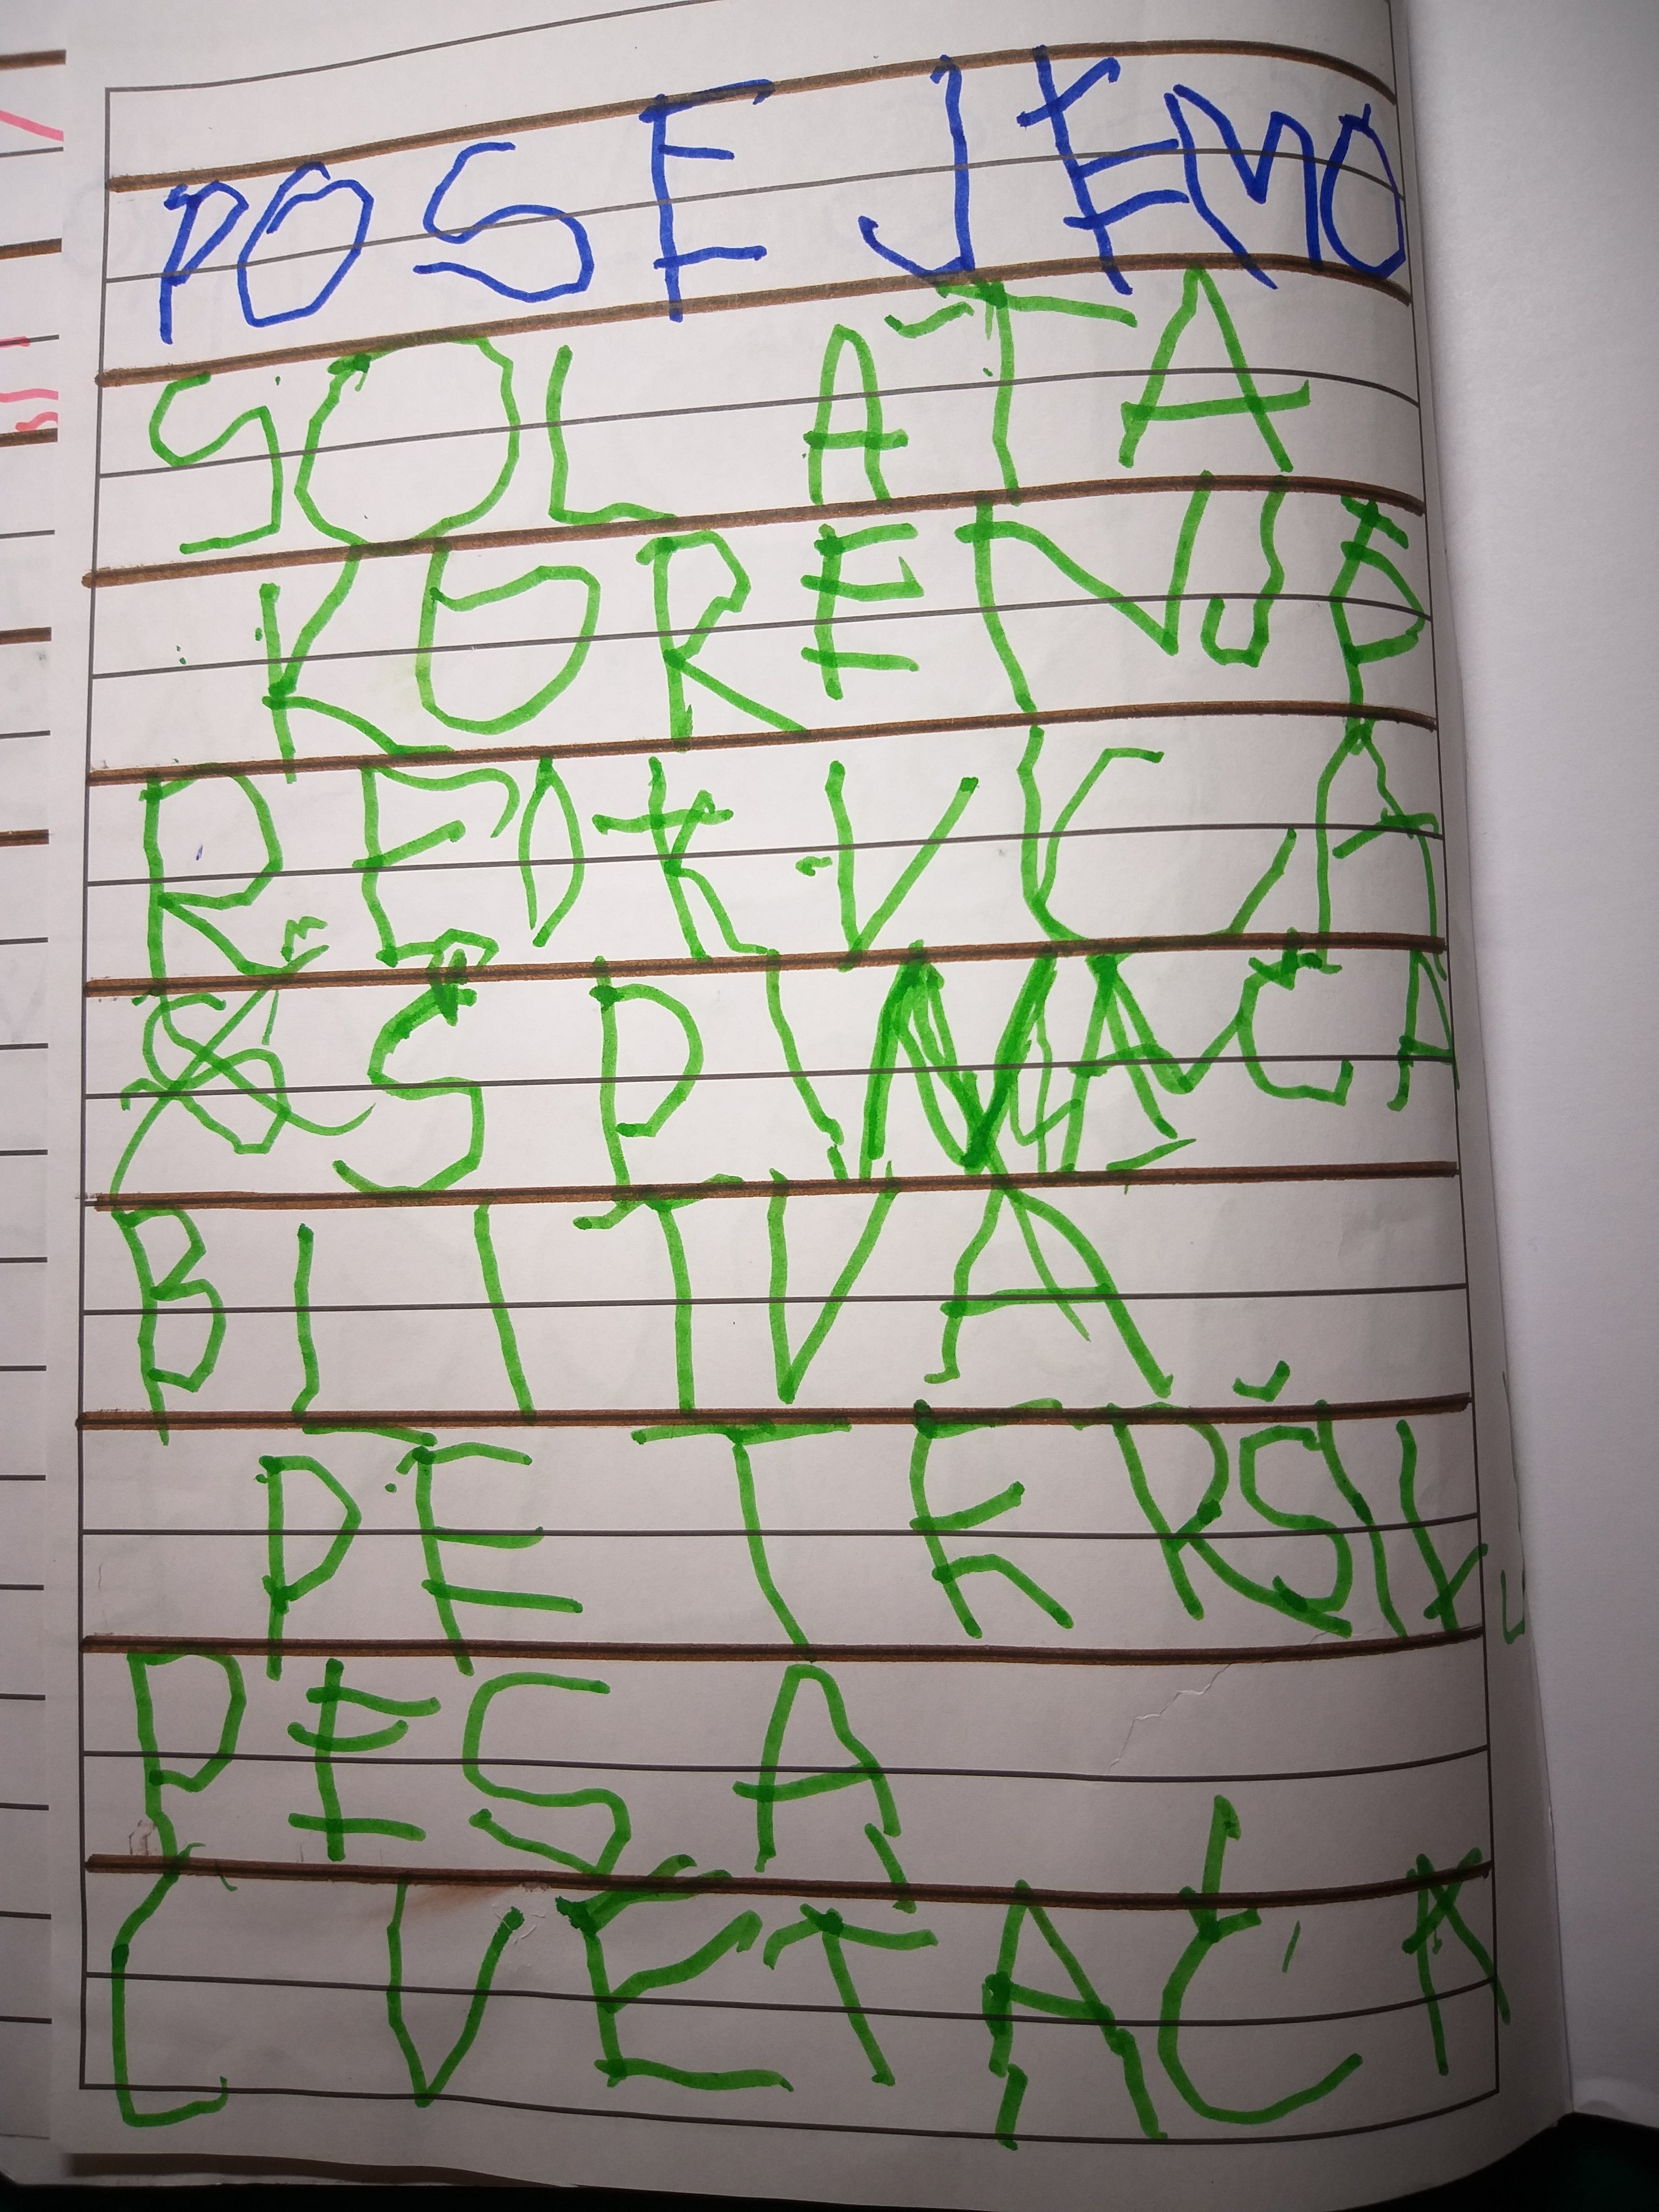 POSEJEMO
SOLATA
KORENJE
REDKVCA
SPINAČA
BLITVA
PETERŠILJ
PESA
CVETAČA